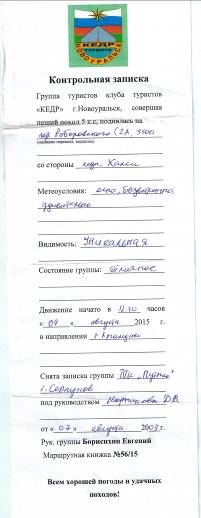 КЕДР
ТУРКЛУБ
НОВОУРАЛЬСК
Контрольная записка
Группа туристов клуба туристов
«КЕДР» г.Новоуральск, совершая
пеший поход 5 к.с, поднялись на
пер. Роборовского (2А, 3900
(название перевала, вершины)
со стороны
Метеоусловия: ясно, безветренно,
Видимость: Уникальная
Состояние группы: отличное
Движение начато в 12 30 часов
« 09 » августа 2015 г.
в направлении
Снята записка группы т/к „Путник“
г. Серпухов
под руководством Мартынова Д.В.
от « 07 » августа 2003 г.
Рук. группы Борисихин Евгений
Маршрутная книжка №56/15
Всем хорошей погоды и удачных
походов!